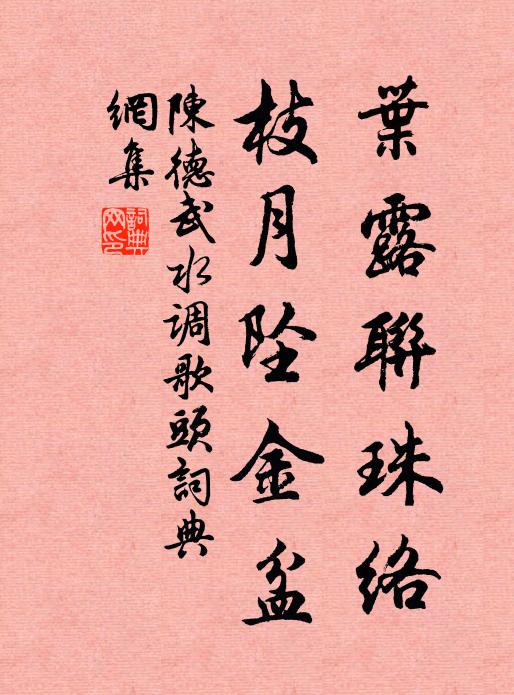 葉露聯珠絡
枝月墜金盆
陳德武水调歌頭詞典
網集
詞典網印